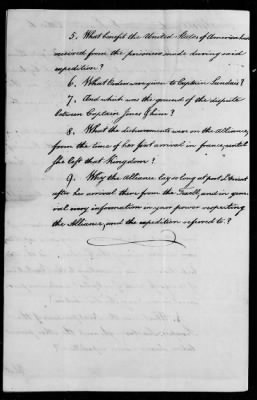 5. What benefit the United States of America have
received from the prisoners made during said
expedition?
6. What orders were given to Captain Landais?
7. And what was the ground of the dispute
between Captain Jones & him?
8. What the disbursements were on the Alliance,
from the time of her first arrival in france, until
She left that Kingdom?
9. Why the Alliance lay so long at port L'Orient
after her arrival there from the Texel, and in gene
ral every information in your power respecting
the Alliance, and the expedition referred to?